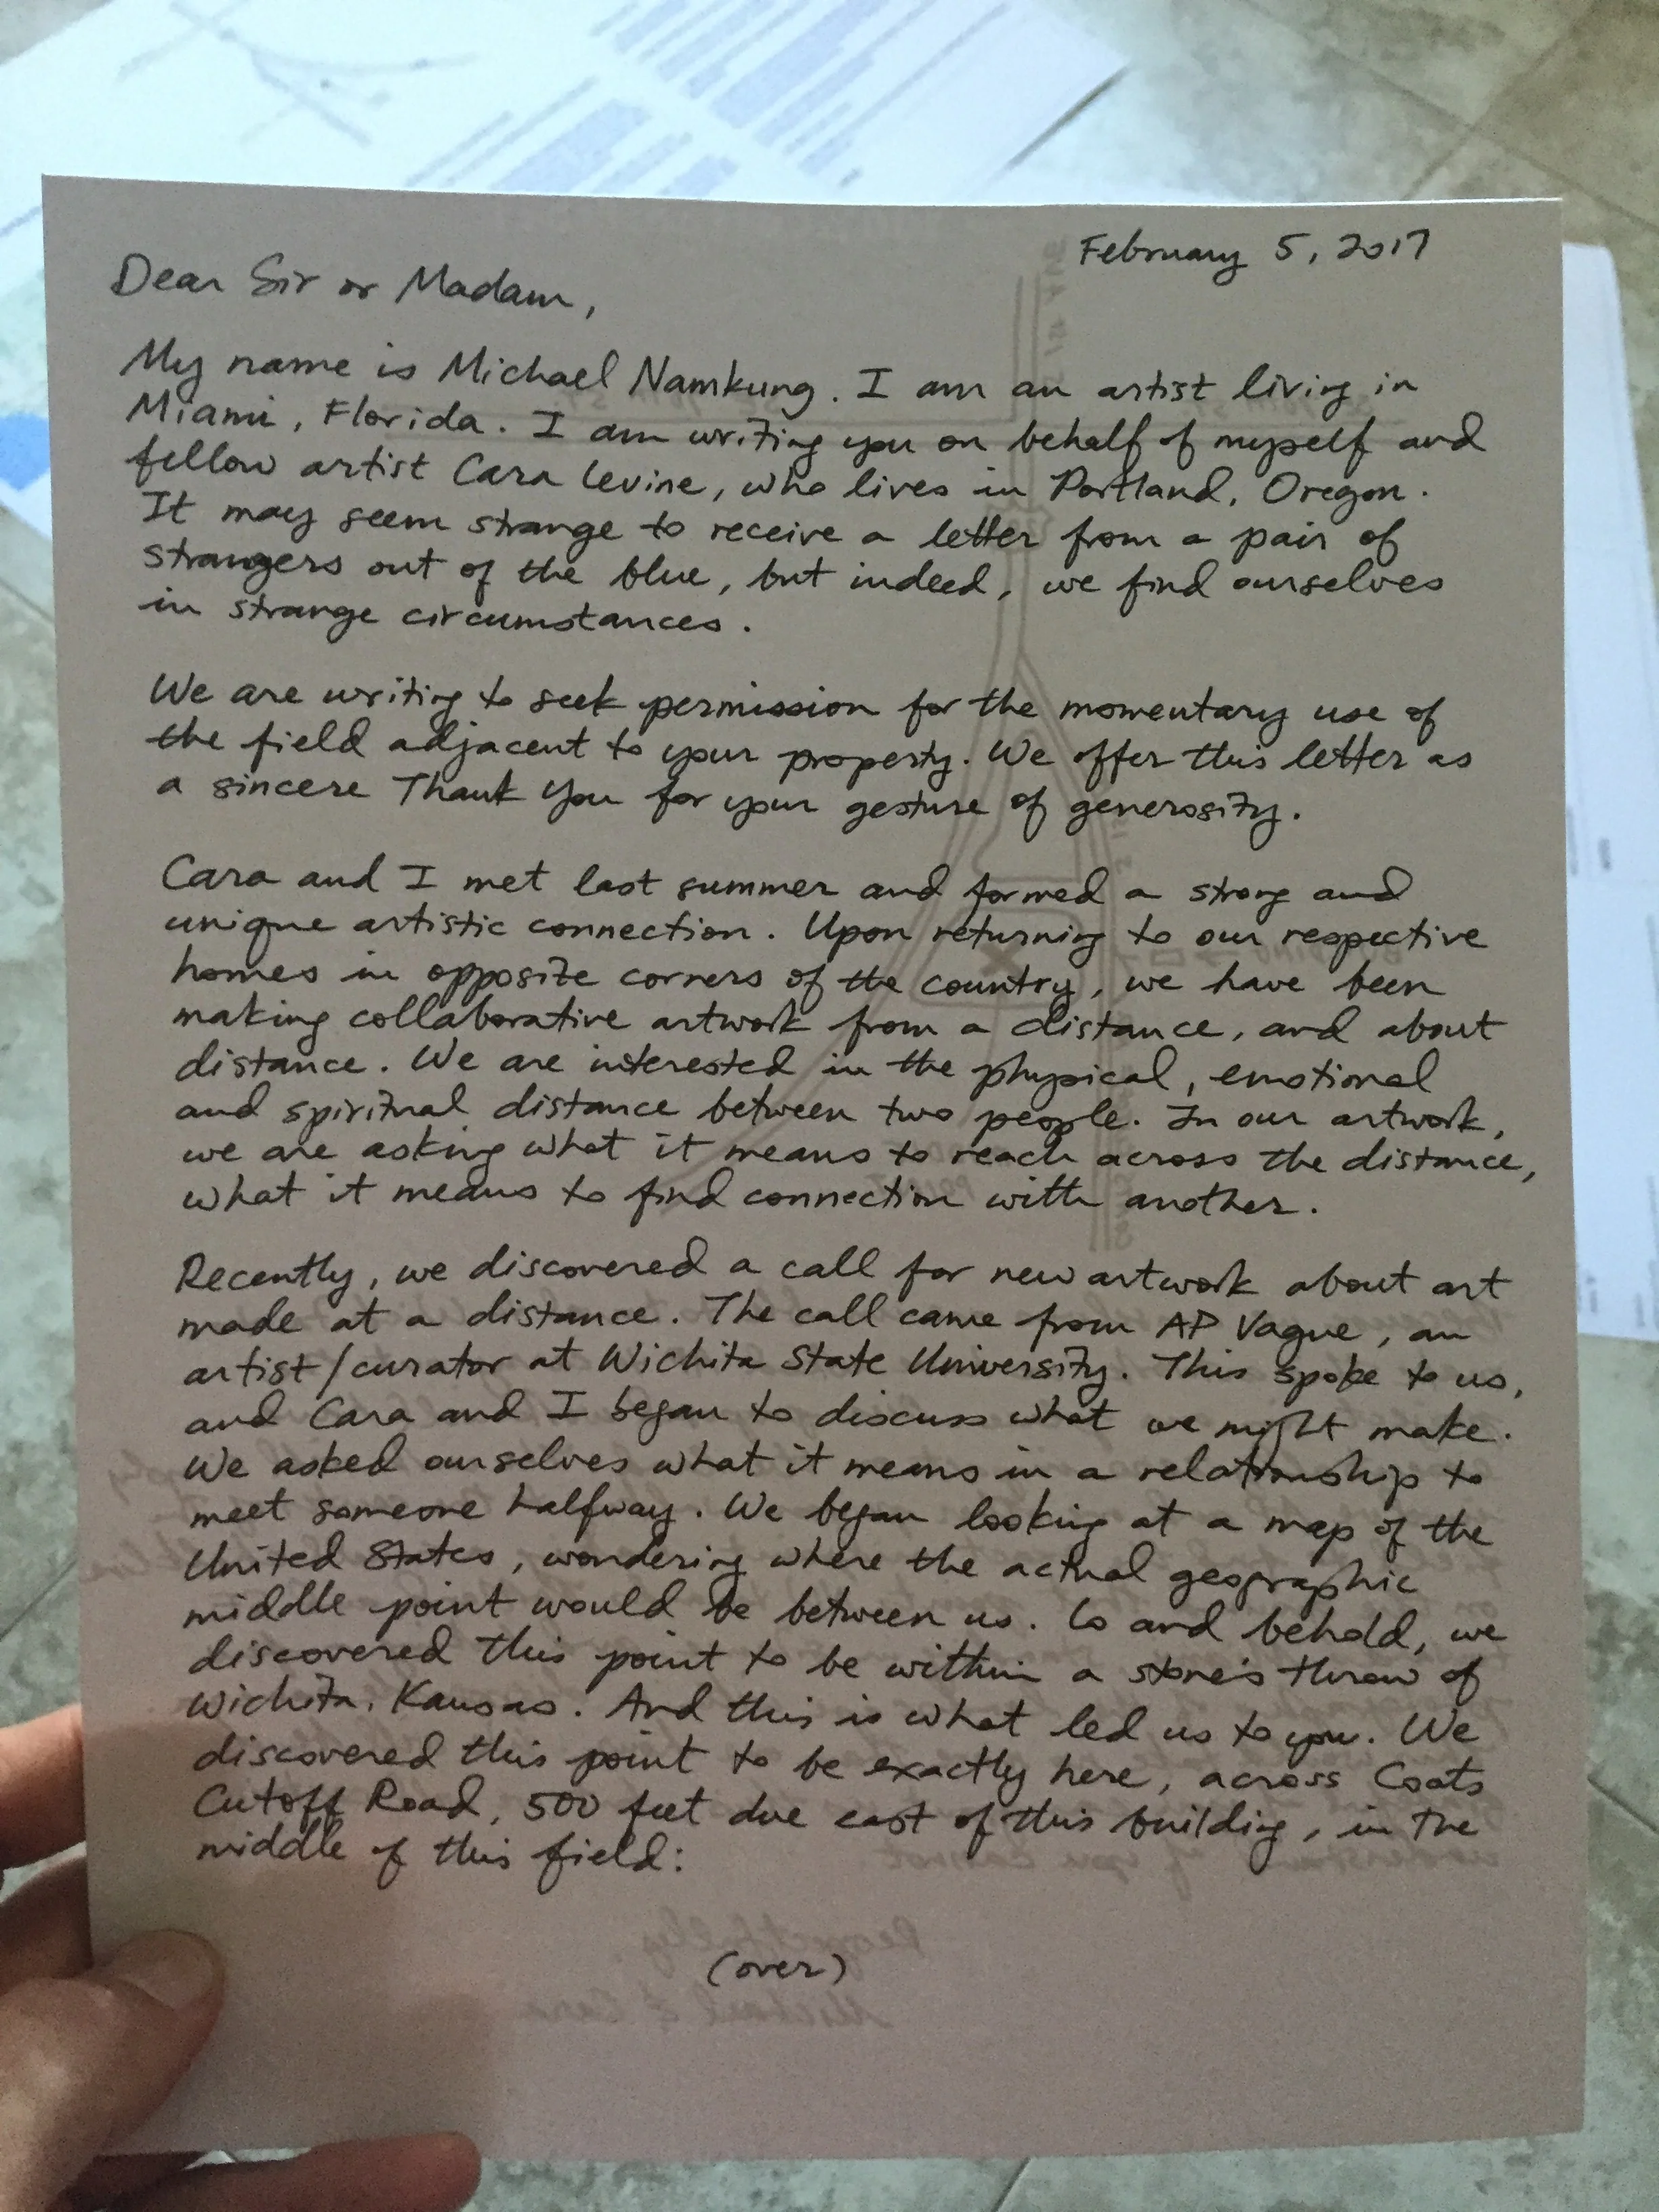 February 5, 2017
Dear Sir or Madam,
My name is Michael Namkung. I am an artist living in
Miami, Florida. I am writing you on behalf of myself and
fellow artist Cara Levine, who lives in Portland, Oregon.
It may seem strange to receive a letter from a pair of
strangers out of the blue, but indeed, we find ourselves
in strange circumstances.
We are writing to seek permission for the momentary use of
the field adjacent to your property. We offer this letter as
a sincere Thank You for your gesture of generosity.
Cara and I met last summer and formed a strong and
unique artistic connection. Upon returning to our respective
homes in opposite corners of the country, we have been
making collaborative artwork from a distance, and about
distance. We are interested in the physical, emotional
and spiritual distance between two people. In our artwork,
we are asking what it means to reach across the distance,
what it means to find connection with another.
Recently, we discovered a call for new artwork about art
made at a distance. The call came from AP Vague, an
artist/curator at Wichita State University. This spoke to us,
and Cara and I began to discuss what we might make.
We asked ourselves what it means in a relationship to
meet someone halfway. We began looking at a map of the
United States, wondering where the actual geographic
middle point would be between us. Lo and behold, we
discovered this point to be within a stone's throw of
Wichita, Kansas. And this is what led us to you. We
discovered this point to be exactly here, across Coats
Cutoff Road, 500 feet due east of this building, in the
middle of this field:
(over)
Respectfully,
Michael & Cara